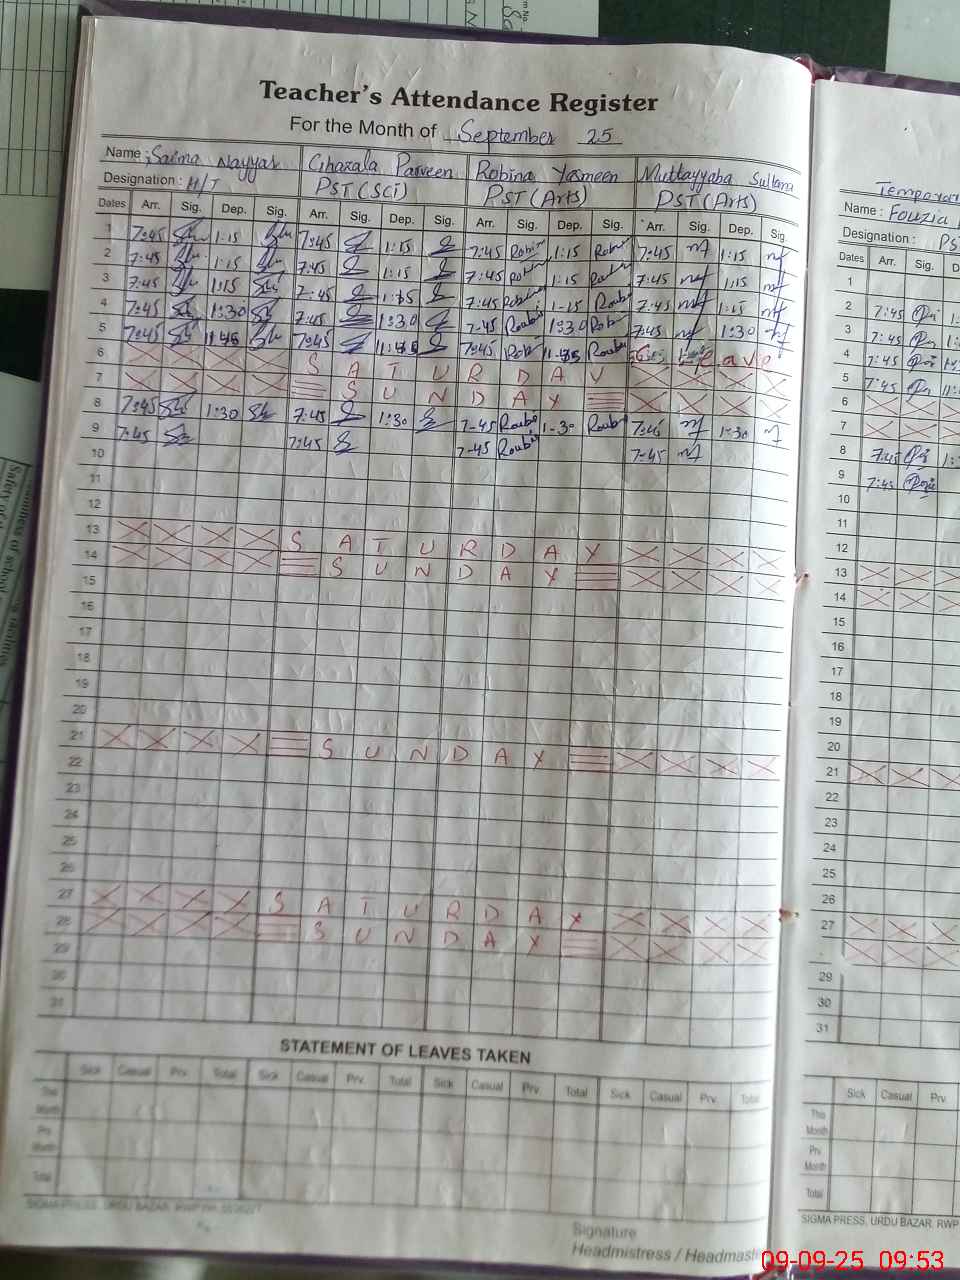 Teacher's Attendance Register
For the Month of September 25
Name : Saima Nayyar Ghazala Parveen Robina Yasmeen Muttayyaba Sultana
Designation : H/T PST (SCI) PST (Arts) PST (Arts)
Dates Arr. Sig. Dep. Sig. Arr. Sig. Dep. Sig. Arr. Sig. Dep. Sig. Arr. Sig. Dep. Sig.
1 7:45 1:15 7:45 1:15 7:45 1:15 7:45 1:15
2 7:45 1:15 7:45 1:15 7:45 1:15 7:45 1:15
3 7:45 1:15 7:45 1:15 7:45 1-15 7:45 1:15
4 7:45 1:30 7:45 1:30 7-45 1:30 7:45 1:30
5 7:45 7:45 7:45 Leave
6 S A T U R D A Y
7 S U N D A Y
8 7:45 1:30 7:45 1:30 7-45 1-30 7:45 1:30
9 7:45 7:45 7-45 7-45
10
11
12
13 S A T U R D A Y
14 S U N D A Y
15
16
17
18
19
20
21 S U N D A Y
22
23
24
25
26
27 S A T U R D A Y
28 S U N D A Y
29
30
31
STATEMENT OF LEAVES TAKEN
Sick Casual Prv. Total Sick Casual Prv. Total Sick Casual Prv. Total Sick Casual Prv. Total
This Month
Prv. Month
Total
SIGMA PRESS, URDU BAZAR, RWP
Signature
Headmistress / Headmast
Name : Fouzia
Designation : PS
Dates Arr. Sig. D
1
2 7:45
3 7:45
4 7:45
5 7:45
6
7
8 7:45
9 7:45
10
11
12
13
14
15
16
17
18
19
20
21
22
23
24
25
26
27
29
30
31
Sick Casual Prv.
This Month
Prv. Month
Total
SIGMA PRESS, URDU BAZAR, RWP
09-09-25 09:53